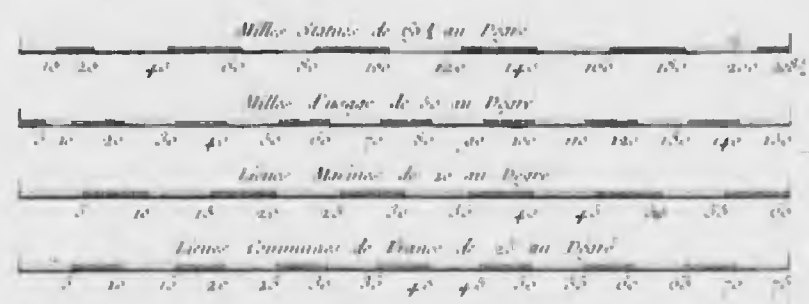 Milles Statues de 69½ au Degré
10 20 40 60 80 100 120 140 160 180 200
Milles d'usage de 50 au Degré
5 10 20 30 40 50 60 70 80 90 100 110 120 130 140 150
Lieues Marines de 20 au Degré
5 10 15 20 25 30 35 40 45 50 55 60
Lieues Communes de France de 25 au Degré
5 10 15 20 25 30 35 40 45 50 55 60 65 70 75